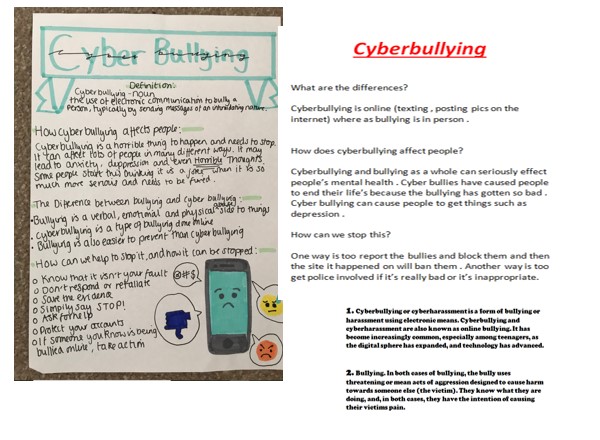 Cyber Bullying
Definition:
Cyberbullying - noun
the use of electronic communication to bully a
person, typically by sending messages of an intimidating nature.
How cyber bullying affects people:
Cyberbullying is a horrible thing to happen and needs to stop.
It can affect lots of people in many different ways. It may
lead to anxiety, depression and even Horrible Thoughts.
Some people start this thinking it is a joke when it is so
much more serious and needs to be
The Difference between bullying and cyber bullying
Bullying is a verbal, emotional and physical side to things
Cyberbullying is a type of bullying done online
Bullying is also easier to prevent than cyber bullying
How can we help to stop it, and how it can be stopped:
Know that it isn't your fault
Don't respond or retaliate
Save the evidence
Simply say STOP!
Ask for help
Protect your accounts
If someone you know is being
bullied online, take action
@#$
Cyberbullying
What are the differences?
Cyberbullying is online (texting , posting pics on the
internet) where as bullying is in person .
How does cyberbullying affect people?
Cyberbullying and bullying as a whole can seriously effect
people's mental health . Cyber bullies have caused people
to end their life's because the bullying has gotten so bad .
Cyber bullying can cause people to get things such as
depression .
How can we stop this?
One way is too report the bullies and block them and then
the site it happened on will ban them . Another way is too
get police involved if it's really bad or it's inappropriate.
1. Cyberbullying or cyberharassment is a form of bullying or
harassment using electronic means. Cyberbullying and
cyberharassment are also known as online bullying. It has
become increasingly common, especially among teenagers, as
the digital sphere has expanded, and technology has advanced.
2. Bullying. In both cases of bullying, the bully uses
threatening or mean acts of aggression designed to cause harm
towards someone else (the victim). They know what they are
doing, and, in both cases, they have the intention of causing
their victims pain.